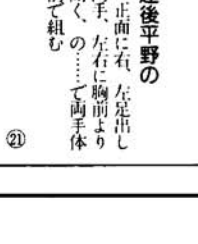 後平野の
正面に右、左足出し
手、左右に胸前より
く、の……で両手体
で組む
㉑